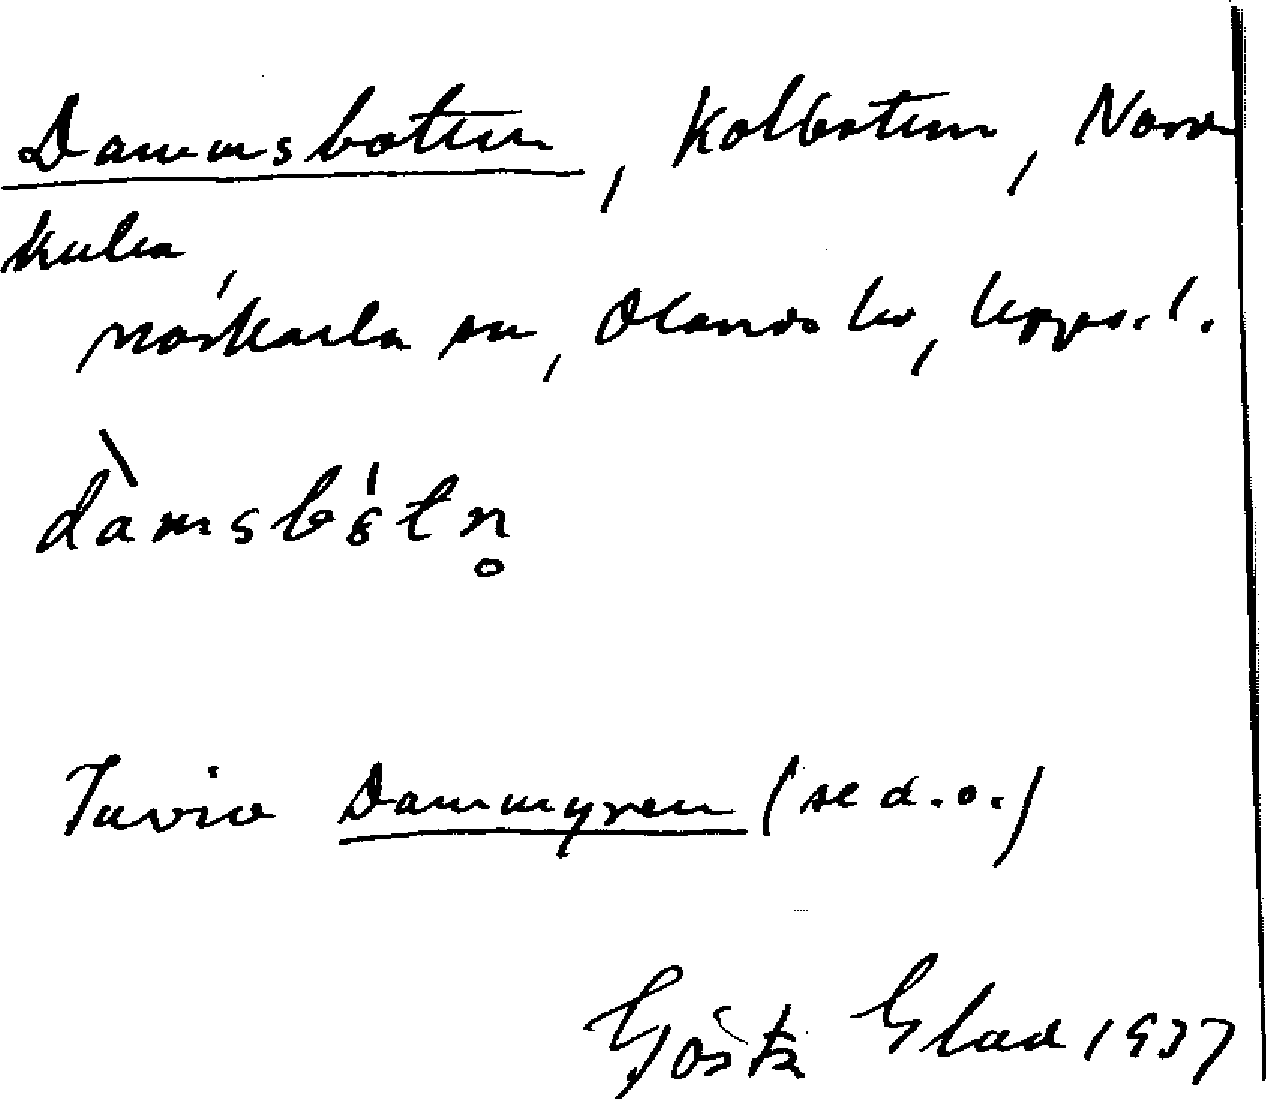 Dammsbotten, Kolbotten, Norr
kulla,
morkarla sn, Olands hd, Upps. l.
dàmsbǿtn̥
Invid Dammyren (se d.o.)
Gösta Glad 1937